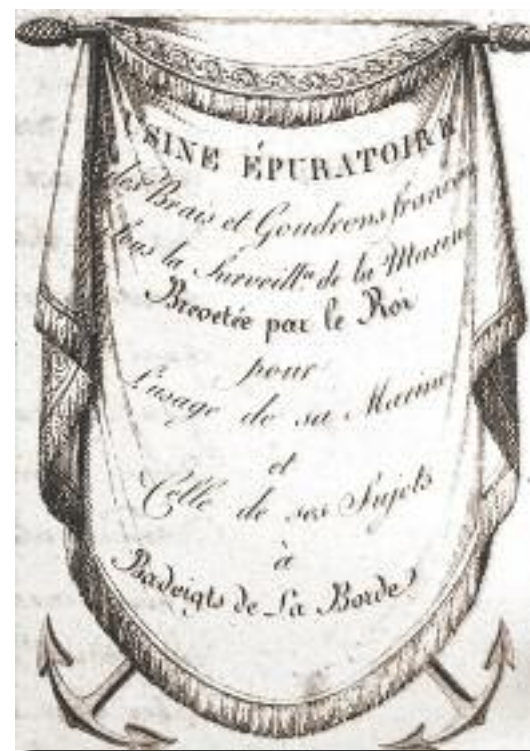 USINE ÉPURATOIRE
des Brais et Goudrons français
sous la Surveill.ce de la Marine
Brevetée par le Roi
pour
L'usage de sa Marine
et
Celle de ses Sujets
à
Badeigts de La Borde